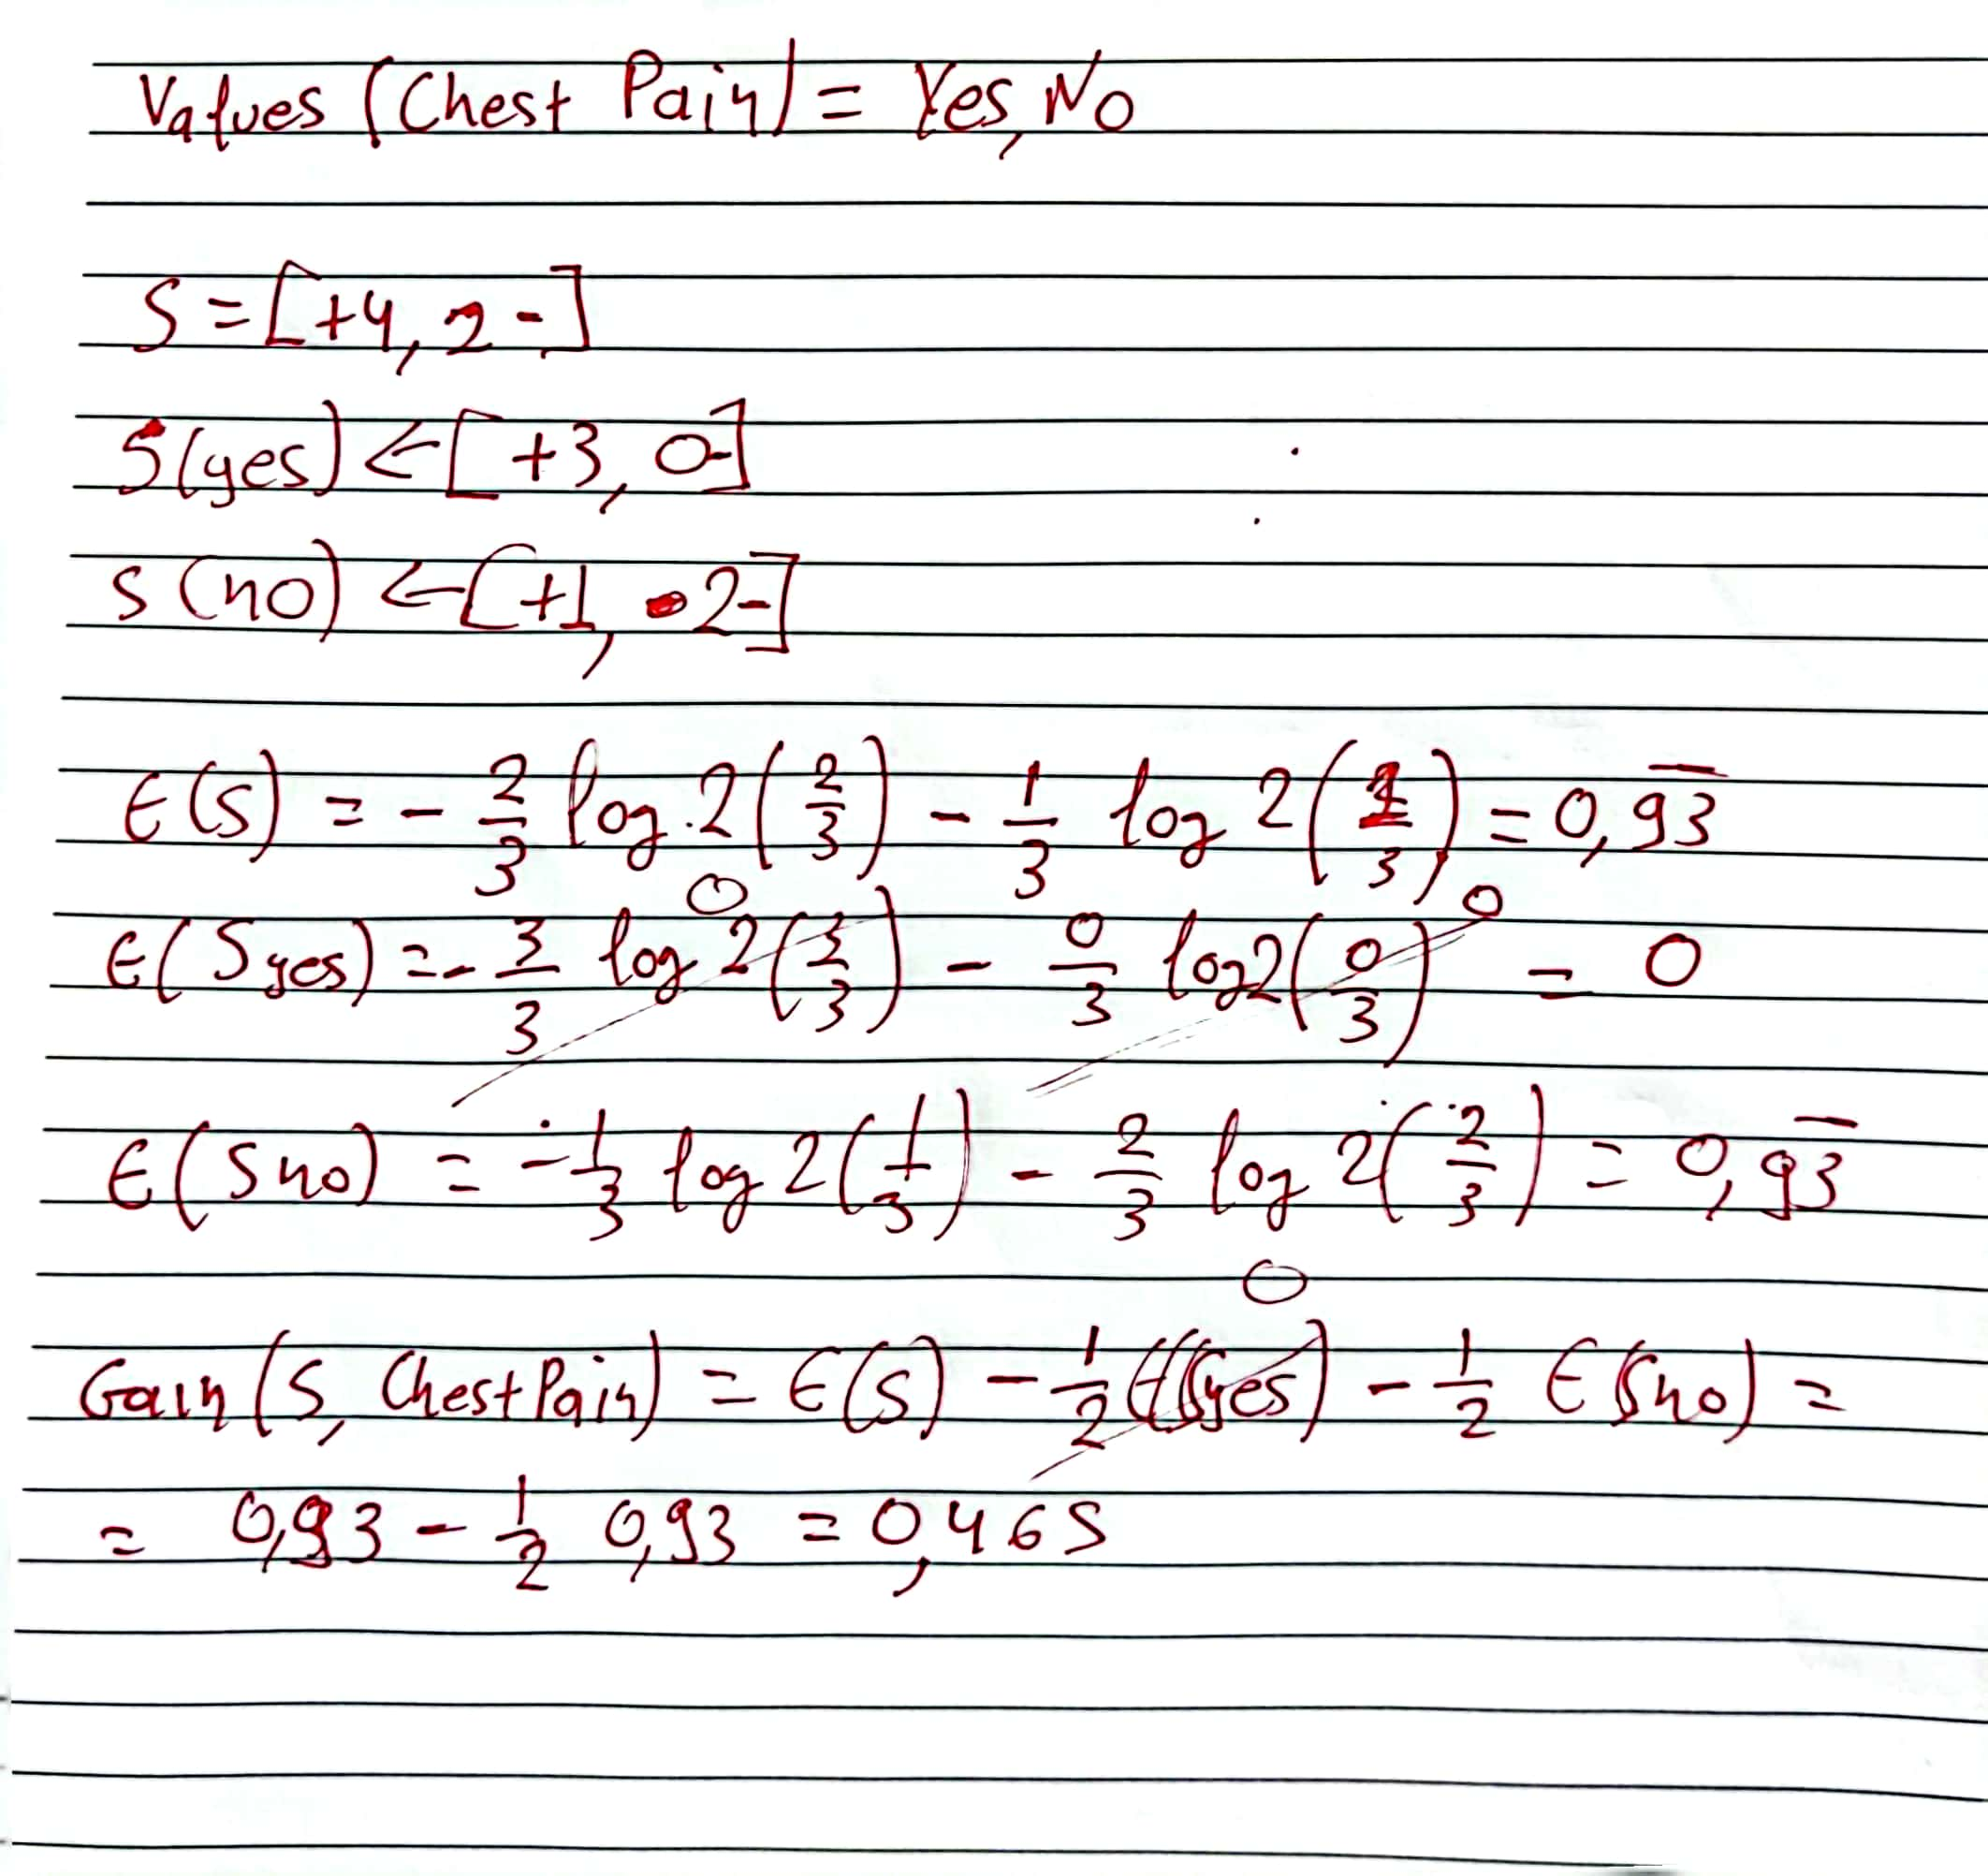 Values (Chest Pain) = Yes, No
S = [+4, 2-]
S(yes) ← [+3, 0-]
S(no) ← [+1, 2-]
E(S) = - 2/3 log 2(2/3) - 1/3 log 2(1/3) = 0,93
0 0
E(Syes) = - 3/3 log 2(3/3) - 0/3 log2(0/3) = 0
E(Sno) = - 1/3 log 2(1/3) - 2/3 log 2(2/3) = 0,93
0
Gain(S, Chest Pain) = E(S) - 1/2 E(Syes) - 1/2 E(Sno) =
= 0,93 - 1/2 0,93 = 0,465